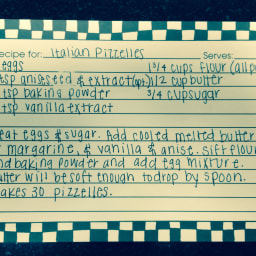 ecipe for: Italian Pizzelles Serves:
eggs 1 3/4 cups flour (all p
tsp anise seed & extract (opt) 1/2 cup butter
tsp baking powder 3/4 cup sugar
tsp vanilla extract
eat eggs & sugar. Add cooled melted butter
r margarine, & vanilla & anise. Sift flour
nd baking powder and add egg mixture.
atter will be soft enough to drop by spoon.
akes 30 pizzelles.